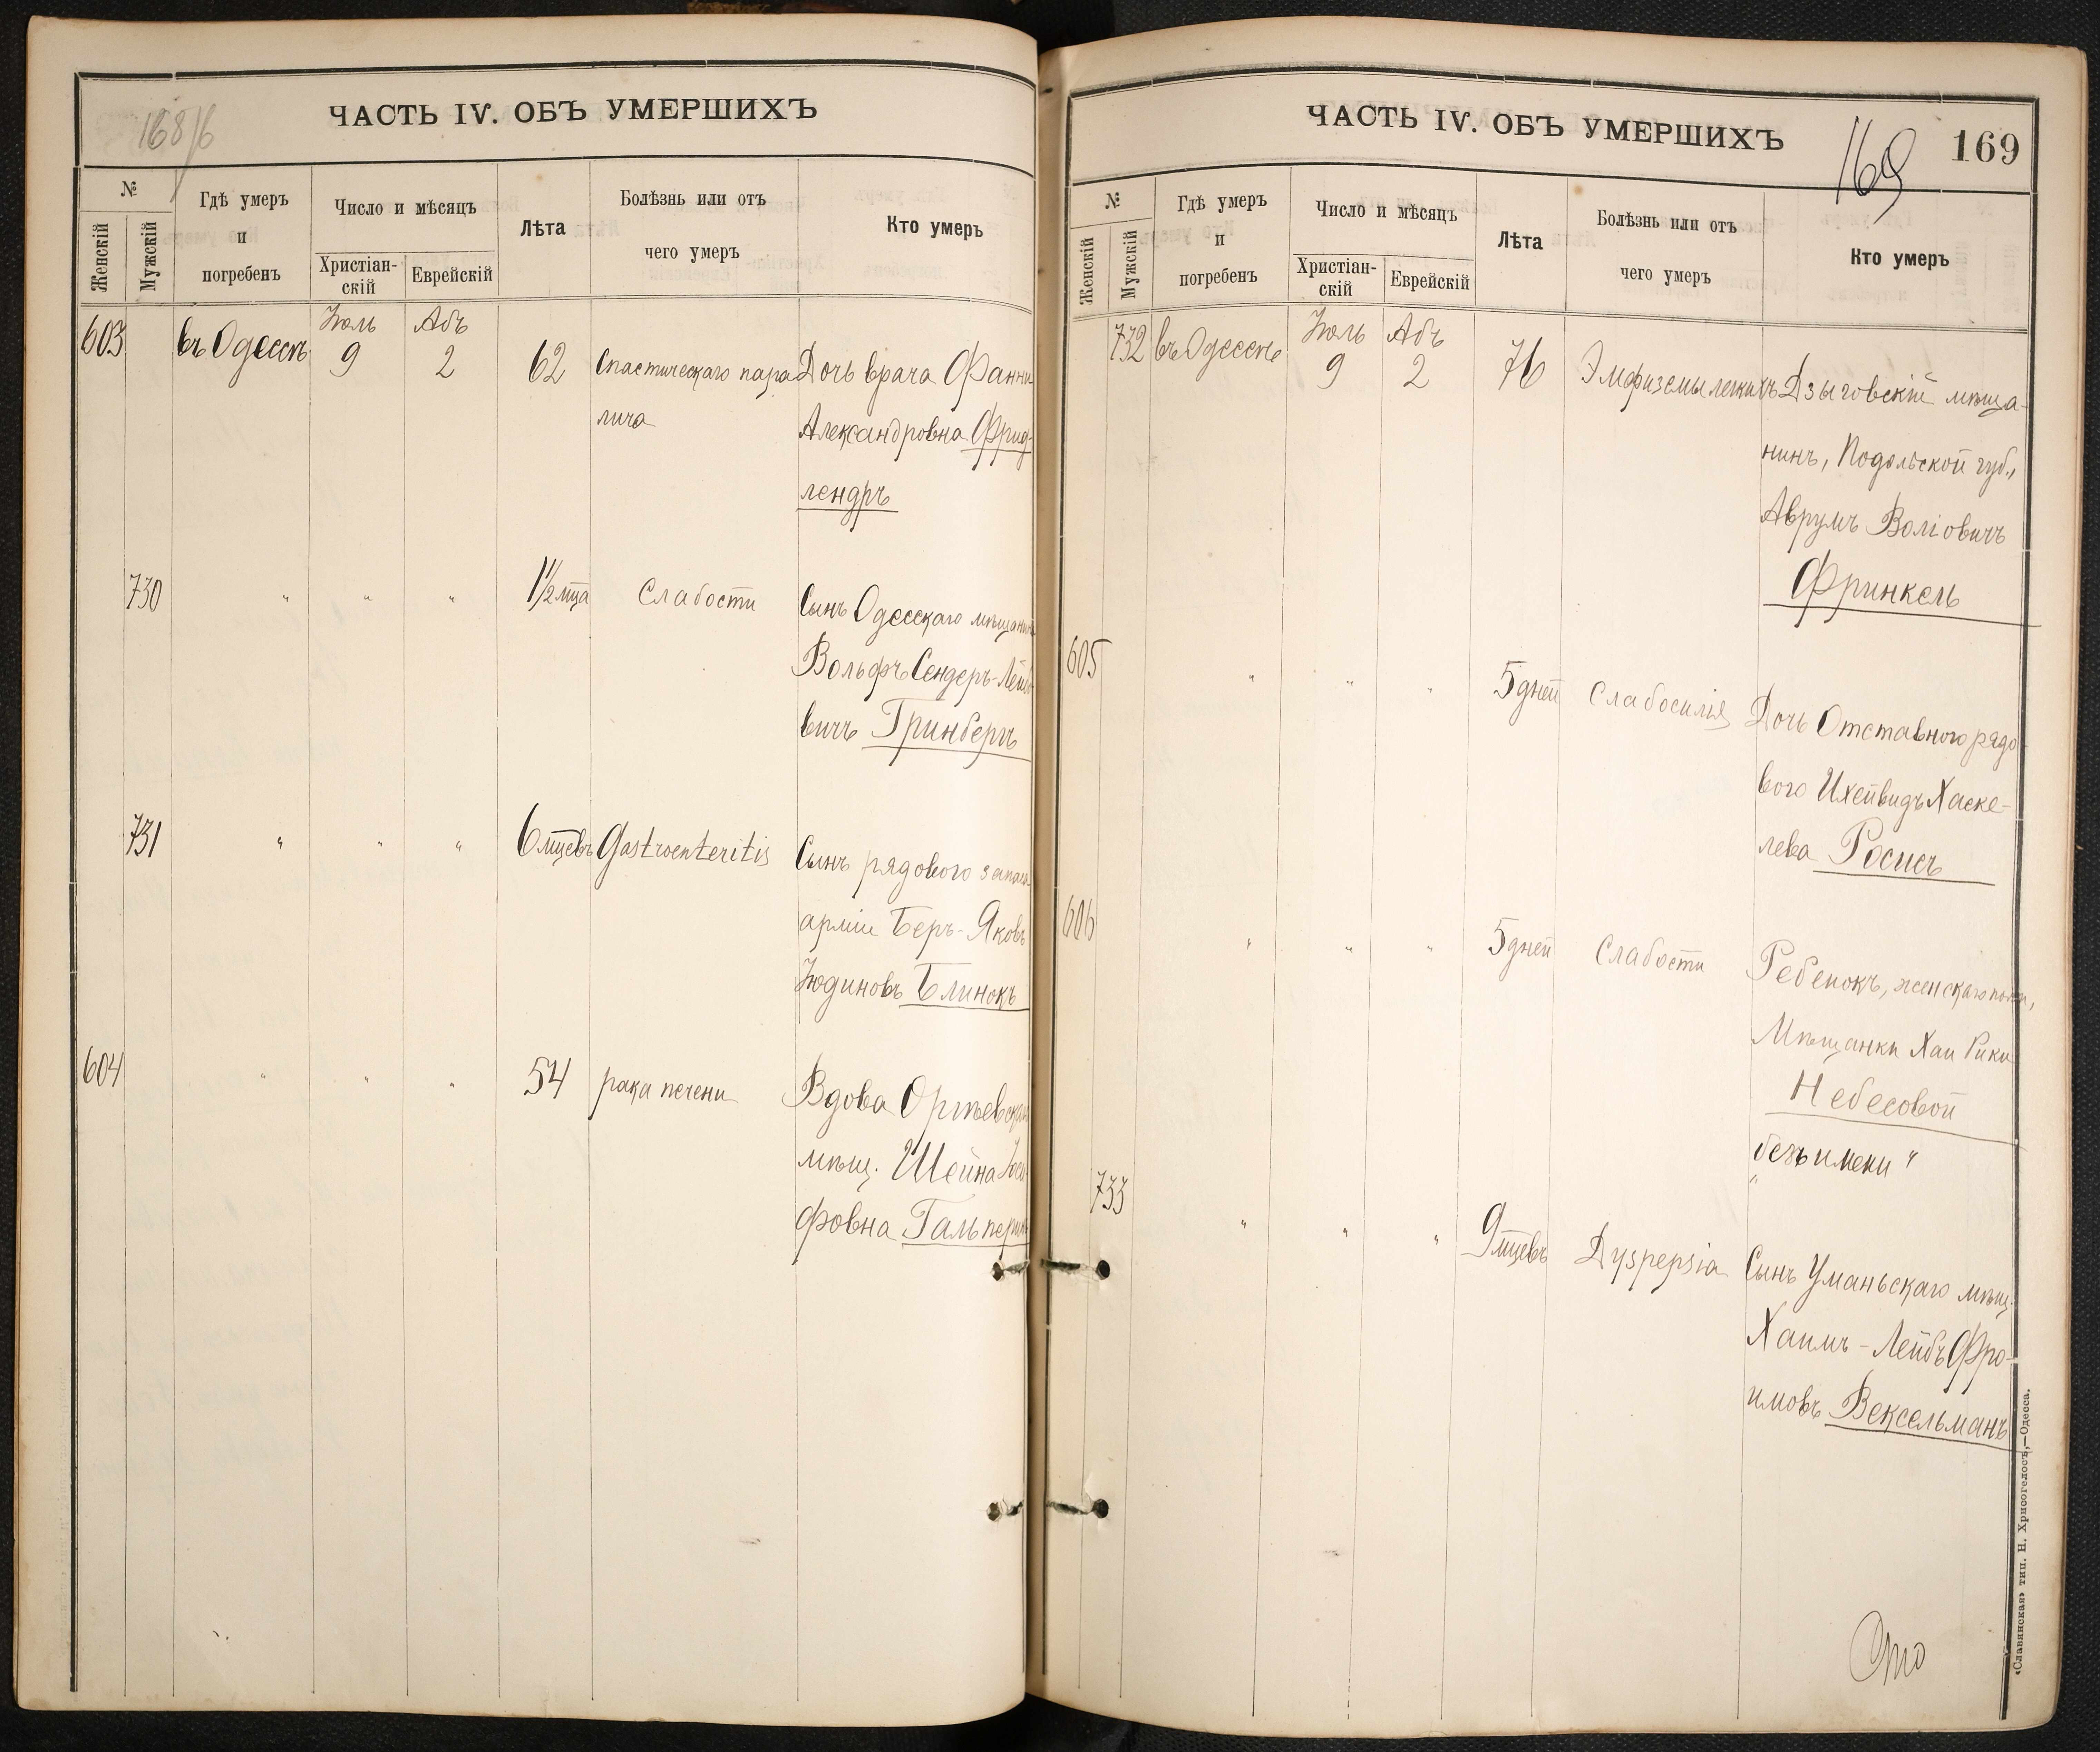 168/6
ЧАСТЬ IV. ОБЪ УМЕРШИХЪ
№
Женскій
Мужскій
Гдѣ умеръ
и
погребенъ
Число и мѣсяцъ
Христіан-
скій
Еврейскій
Лѣта
Болѣзнь или отъ
чего умеръ
Кто умеръ
603
въ Одессѣ
Іюль
9
Абъ
2
62
Спастическаго пара
лича
Дочь врача Фанни
Александровна Фрид-
лендръ
730
" " "
1½ мца
Слабости
Сынъ Одесскаго мѣщанина
Вольфъ Сендеръ-Лейбо
вичъ Гринбергъ
731
" " "
6 мцевъ
Gastroenteritis
Сынъ рядового запаса
арміи Беръ-Яковъ
Юдиновъ Блинокъ
604
" " "
54
рака печени
Вдова
мѣщ. Шейна Іосе-
фовна Гальперинъ
ЧАСТЬ IV. ОБЪ УМЕРШИХЪ
169
169
№
Женскій
Мужскій
Гдѣ умеръ
и
погребенъ
Число и мѣсяцъ
Христіан-
скій
Еврейскій
Лѣта
Болѣзнь или отъ
чего умеръ
Кто умеръ
732
въ Одессѣ
Іюль
9
Абъ
2
76
Эмфиземы легкихъ
Дзыговскій мѣща-
нинъ, Подольской губ.,
Аврумъ Воліовичъ
Фринкель
605
" " "
5 дней
Слабосилія
Дочь Отставного рядо-
вого Ихейвидъ Хаске-
лева Росисъ
606
" " "
5 дней
Слабости
Ребенокъ, женскаго пола,
Мѣщанки Хаи Рики
Небесовой
"безъ имени"
733
" " "
9 мцевъ
Dyspepsia
Сынъ Уманьскаго мѣщ.
Хаимъ-Лейбъ Фро-
имовъ Вексельманъ
«Славянская» тип. Н. Хрисогелосъ,—Одесса.